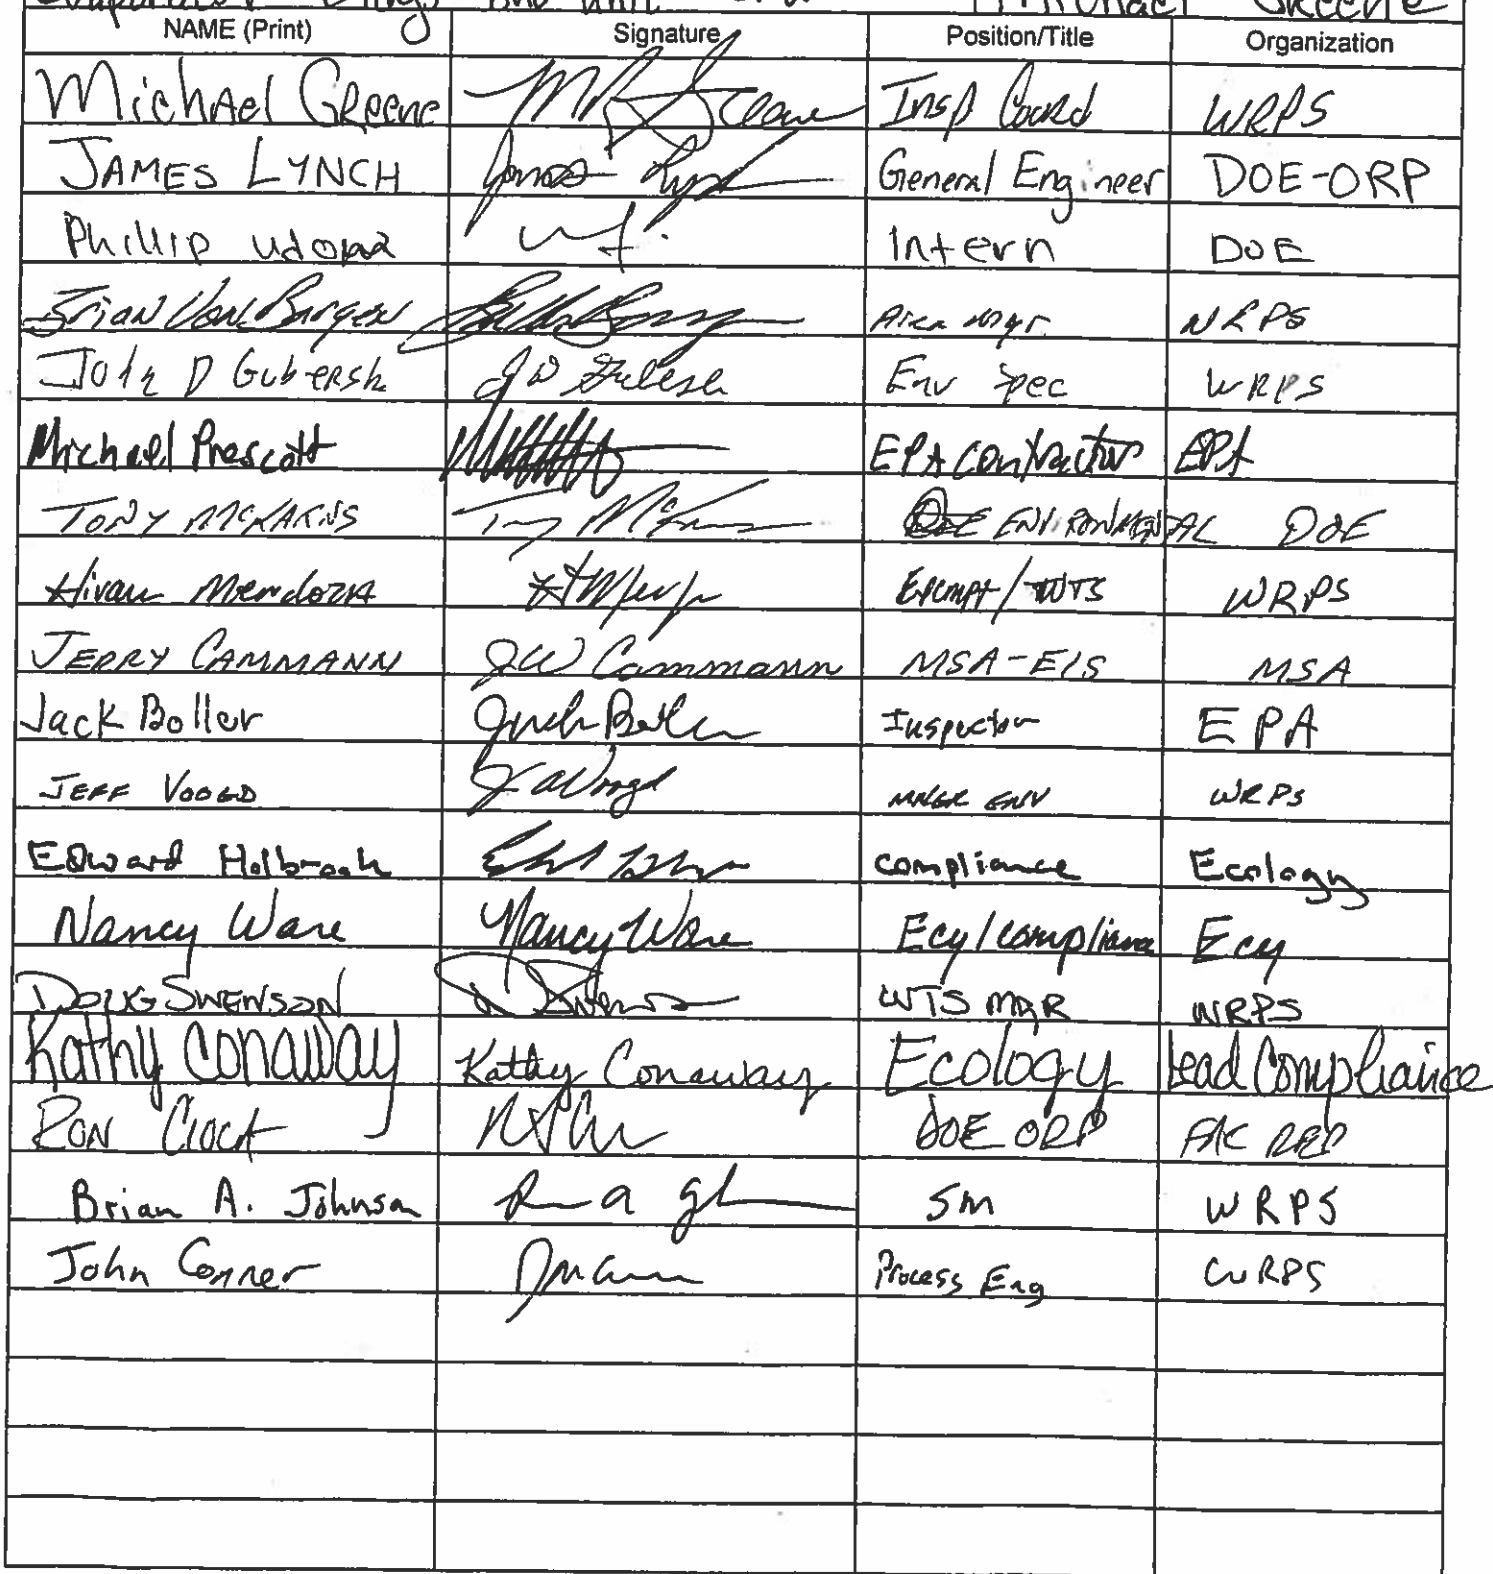 Michael Greene
NAME (Print) Signature Position/Title Organization
Michael Greene Insp Coord WRPS
JAMES LYNCH James Lynch General Engineer DOE-ORP
Phillip Intern DOE
Brian Von Bargen Area Mgr. WRPS
John D Guberski J D Guberski Env Spec WRPS
Michael Prescott EPA Contractor EPA
TONY MCKARNS Tony McKarns ENVIRONMENTAL DOE
Hiram Mendoza Exempt/WTS WRPS
JERRY CAMMANN JW Cammann MSA-EIS MSA
Jack Boller Jack Boller Inspector EPA
JEFF VOOGD J A Voogd MNGR ENV WRPS
Edward Holbrook compliance Ecology
Nancy Ware Nancy Ware Ecy/compliance Ecy
DOUG SWENSON D Swenson WTS MGR WRPS
Kathy Conaway Kathy Conaway Ecology Lead Compliance
RON DOE ORP FAC REP
Brian A. Johnson SM WRPS
John Conner Process Eng WRPS